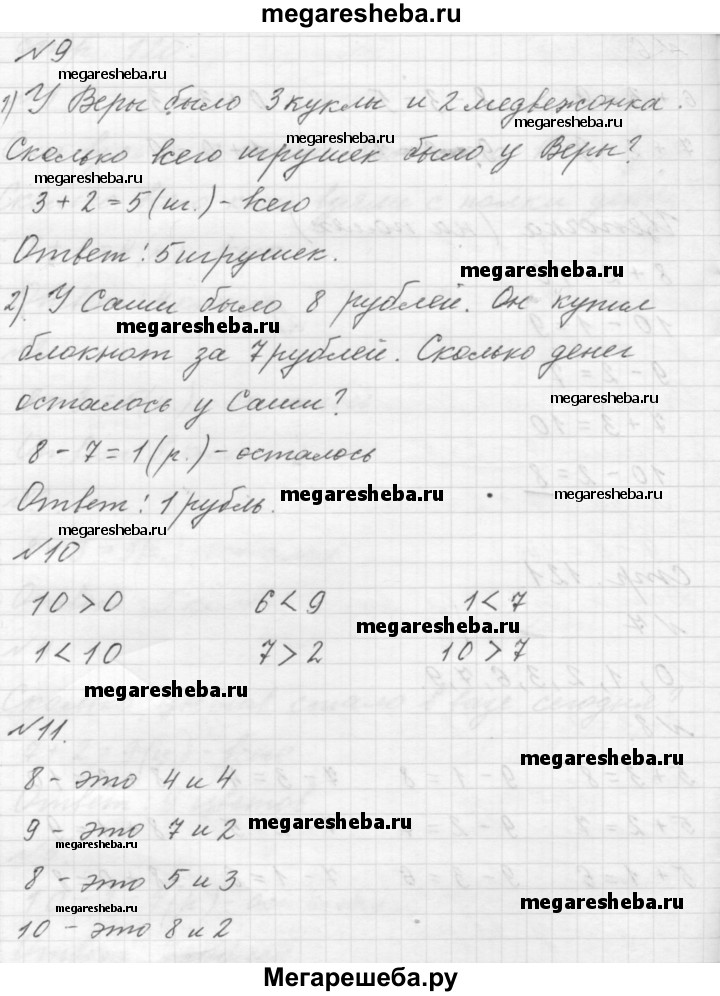 megaresheba.ru
№9
megaresheba.ru
1) У Веры было 3 куклы и 2 медвежонка.
megaresheba.ru
megaresheba.ru
Сколько всего игрушек было у Веры?
megaresheba.ru
3 + 2 = 5 (иг.) - всего
Ответ: 5 игрушек.
megaresheba.ru
2). У Саши было 8 рублей. Он купил
megaresheba.ru
блокнот за 7 рублей. Сколько денег
осталось у Саши?
megaresheba.ru
8 - 7 = 1 (р.) - осталось
Ответ: 1 рубль.
megaresheba.ru
megaresheba.ru
megaresheba.ru
№10
10 > 0 6 < 9 1 < 7
megaresheba.ru
1 < 10 7 > 2 10 > 7
megaresheba.ru
№11.
megaresheba.ru
8 - это 4 и 4
9 - это 7 и 2
megaresheba.ru
megaresheba.ru
8 - это 5 и 3
megaresheba.ru
megaresheba.ru
10 - это 8 и 2
Мегарешеба.ру